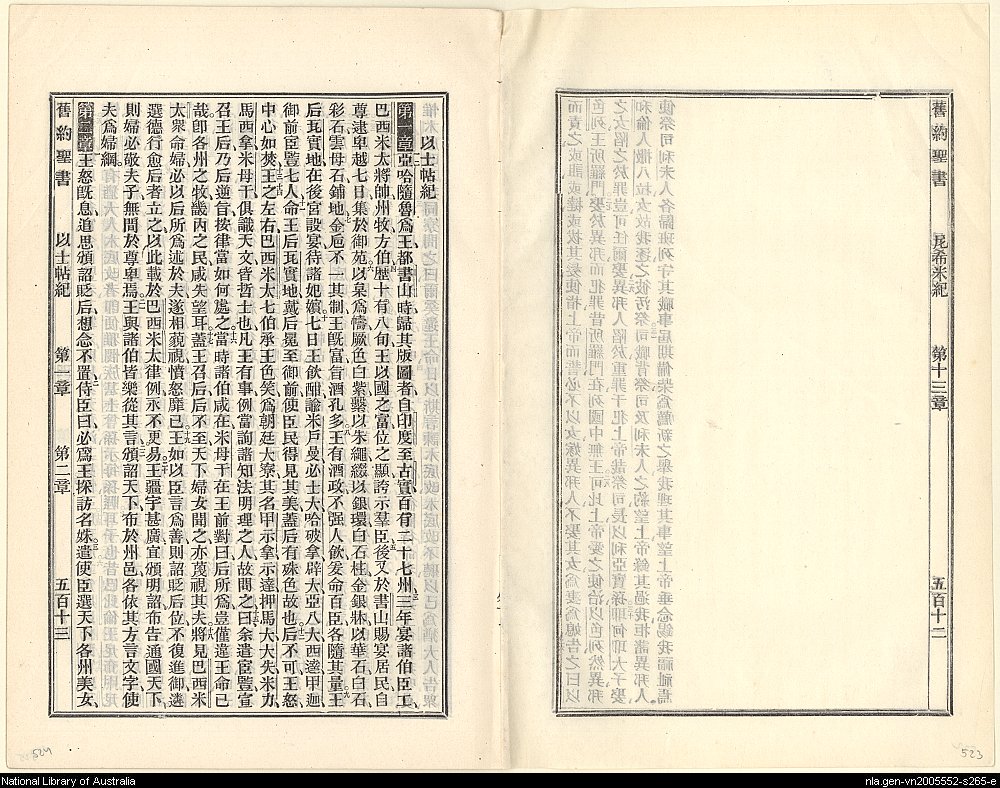 舊約聖書 尼希米紀 第十三章 五百十二
以士帖紀
第一章亞哈隨魯爲王都書山時歸其版圖者自印度至古實百有二十七州三年宴諸伯臣工
巴西米太將帥州牧方伯歷十有八旬王以國之富位之顯誇示羣臣後又於書山賜宴居民自
尊逮卑越七日集於御苑以帛爲幬厥色白紫纍以朱繩綴以銀環白石柱金銀牀以華石白石
彩石雲母石鋪地金卮不一其制王旣富旨酒孔多王有酒政不强人飲爰命百臣各隨其量王
后瓦實地在後宮設宴待諸妃嬪七日王飲酣諭米戶曼必士大哈破拿辟大亞八大西達甲迦
御前宦豎七人命王后瓦實地戴后冕至御前使臣民得見其美蓋后有殊色故也后不可王怒
中心如焚王之左右巴西米太七伯承王色笑爲朝廷大寮其名甲示拿示達押馬大大失米力
馬西拿米母干俱識天文皆哲士也凡王有事例當詢諸知法明理之人故問之曰余遣宦豎宣
召王后乃后逆旨按律當如何處之當時諸伯咸在米母干在王前對曰后所爲豈僅違王命已
哉卽各州之牧畿內之民咸失望耳蓋王召后后不至天下婦女聞之亦蔑視其夫將見巴西米
太衆命婦必以后所爲述於夫遂相藐視憤怒靡已王如以臣言爲善則詔貶后位不復進御遴
選德行愈后者立之以此載於巴西米太律例永不更易王疆宇甚廣宜頒明詔布告通國天下
則婦必敬夫子無間於尊卑焉王與諸伯皆樂從其言頒詔天下布於州邑各依其方言文字使
夫爲婦綱
第二章王怒旣息追思頒詔貶后想念不置侍臣曰必爲王採訪名姝遣使臣選天下各州美女
舊約聖書 以士帖紀 第一章 第二章 五百十三
524
523
National Library of Australia
nla.gen-vn2005552-s265-e